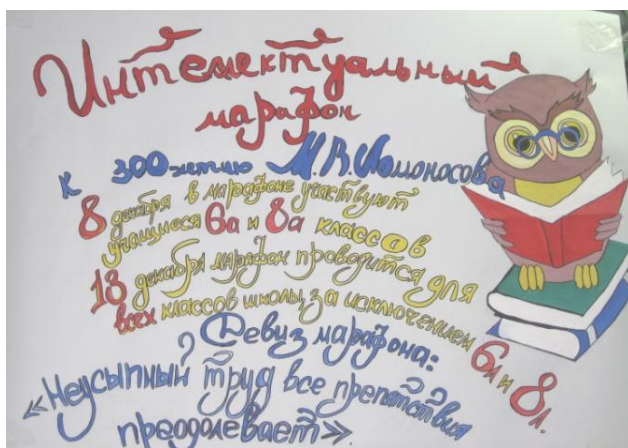 Интеллектуальный
марафон
к 300-летию М.В.Ломоносова
8 декабря в марафоне участвуют
учащиеся 6а и 8а классов
13 декабря марафон проводится для
всех классов школы, за исключением 6л и 8л.
Девиз марафона:
«Неусыпный труд все препятствия
преодолевает»